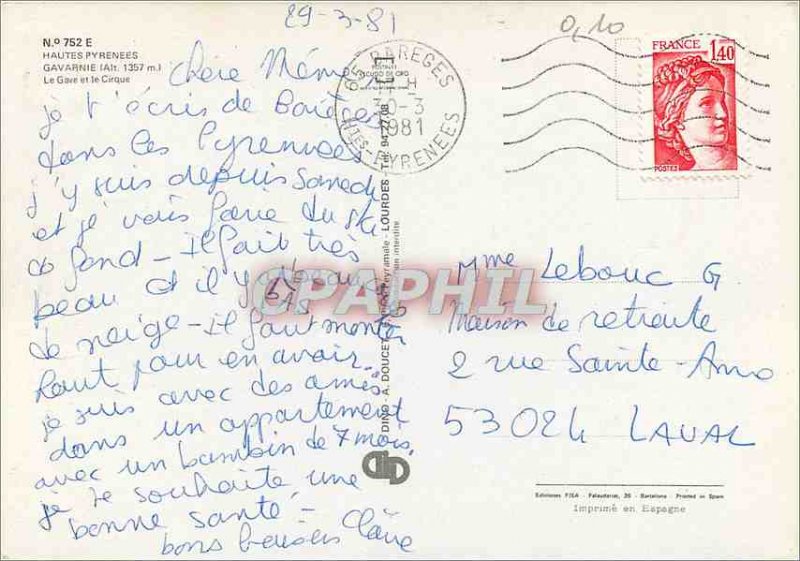 29-3-81
0,10
N.º 752 E
HAUTES PYRENEES
GAVARNIE (Alt. 1357 m.)
Le Gave et le Cirque
Chère Mémé
je t'écris de Barèges
dans les Pyrenées
j'y suis depuis samedi
et je vais faire du ski
de fond - Il fait très
beau et il y a beaucoup
PAS
de neige - il faut monter
haut pour en avoir.
je suis avec des amis
dans un appartement
avec un bambin de 7 mois.
je te souhaite une
bonne santé -
bons baisers Claire
65 BAREGES
30-3
1981
HTES-PYRENEES
FRANCE
1,40
POSTES
ESCUDO DE ORO
DINO - A. DOUCET Peyramale - LOURDES - Tél. 94.27.08
interdite
CPAPHIL
Mme Lebouc G
Maison de retraite
2 rue Sainte-Anne
53024 LAVAL
Ediciones FISA - Palaudarias, 26 - Barcelona Printed in Spain
Imprimé en Espagne